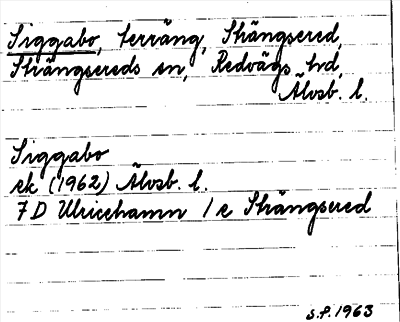 Siggabo, terräng, Strängsered,
Strängsereds sn, Redvägs hd,
Älvsb. l.
Siggabo
ek (1962) Älvsb. l.
7 D Ulricehamn 1 e Strängsered
S.F. 1963